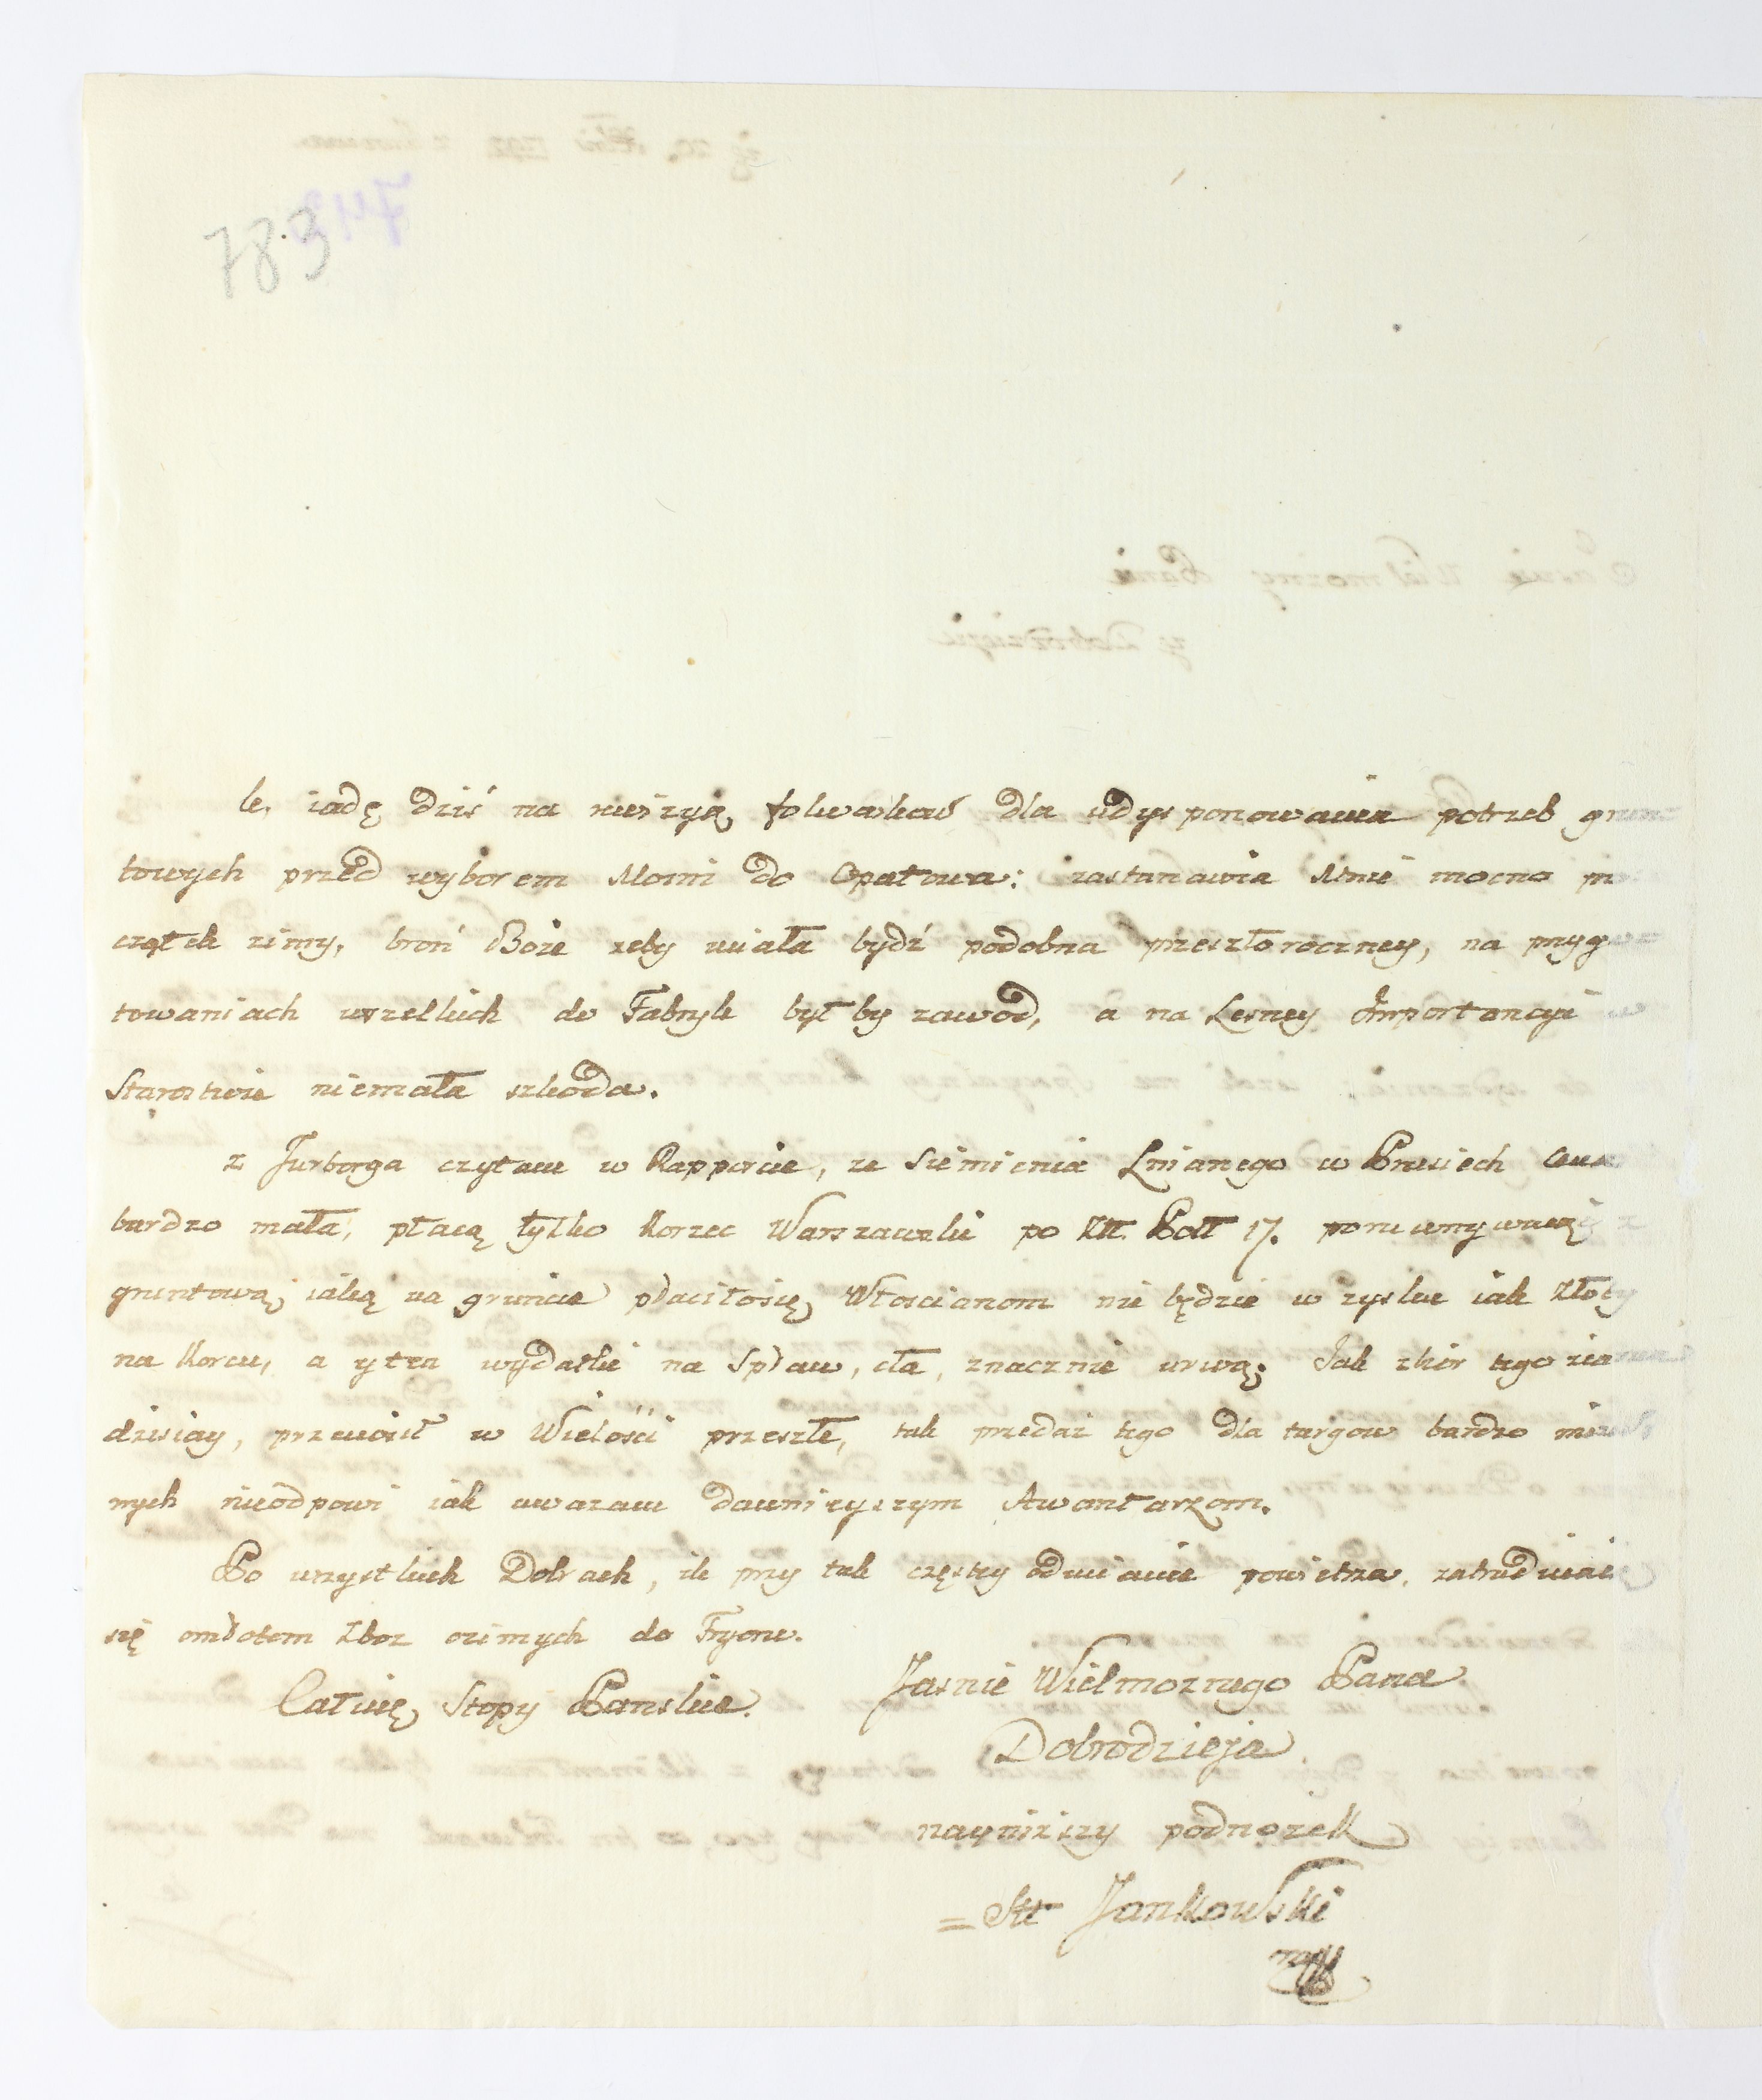 783
le, iadę dziś na resztę folwarkow dla udysponowania potrzeb grun
towych przed wyborem Moim do Opatowa: zastanawia Mnie mocno po
czątek zimy, broń Boże zeby miała bydź podobna przeszłoroczney, na przygo
towaniach wszelkich do Fabryk byłby zawod, a na Lesney Importancyi w
Starostwie niemała szkoda.
z Jurborga czytam w Rapporcie, ze Siemienia Lnianego w Prusiech Cena
bardzo mała, płacą tylko Korzec Warszawski po Złł. Poll 17. porownywaiąc z
gruntową, iaką na gruncie płaciłosię Włoscianom nie będzie w zysku iak Złoty
na Korcu, a y ten wydatki na Spław, cła, znacznie urwą; Jak zbior tego
dzisiay, przewosił w Wielości przeszłe, tak przedaż tego dla targow bardzo
nych nieodpowi iak uwazam dawnieyszym Awantarzom.
Po wszystkich Dobrach, ile przy tak częstey odmianie powietrza, zatrudniaią
się omłotem Zboz ozimych do Fryoru.
Całuię Stopy Panskie.
Jasnie Wielmoznego Pana
Dobrodzieja
nayniższy podnozek
= Stt Jankowski